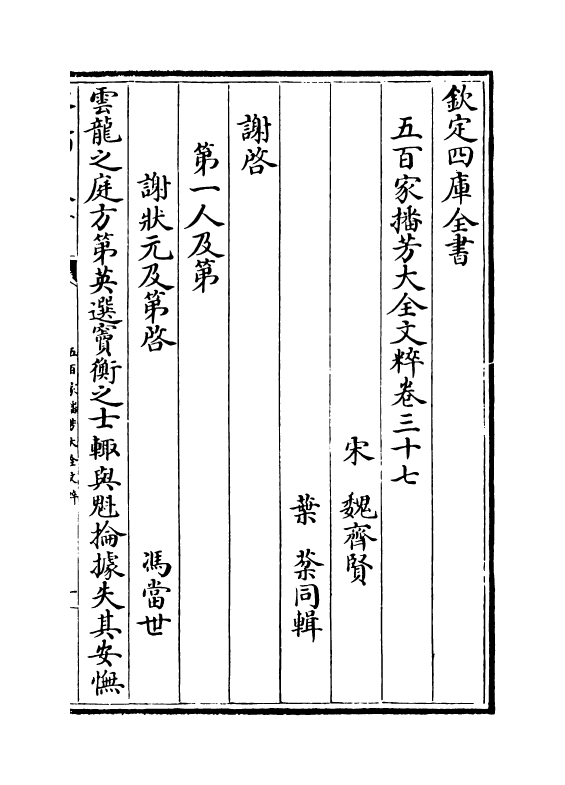 欽定四庫全書
五百家播芳大全文粹卷三十七
宋　魏齊賢
葉　棻同輯
謝啓
第一人及第
謝狀元及第啓　馮當世
雲龍之庭方第英選竇衡之士輙與魁掄據失其安憮
五百家播芳大全文粹
一